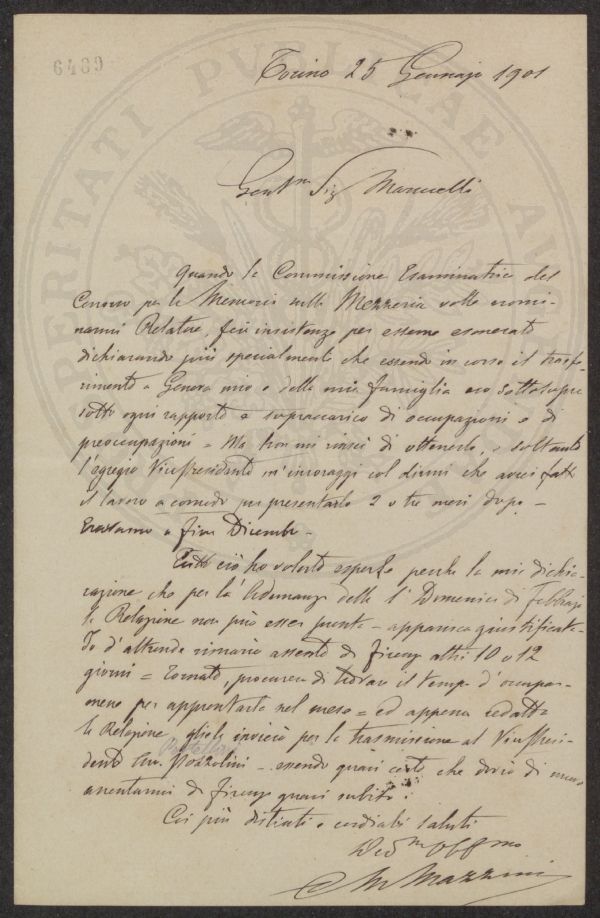 6489
Torino 25 Gennajo 1901
Gent.mo Sig Marucelli
Quando la Commissione Esaminatrice del
Concorso per la Memoria sulla Mezzeria volle nomi-
narmi Relatore, feci insistenze per esserne esonerato
dichiarando più specialmente che essendo in corso il trasfe-
rimento a Genova mio e della mia famiglia ero sottosopra
sotto ogni rapporto e sopraccarico di occupazioni e di
preoccupazioni = Ma non mi riuscì di ottenerlo, e soltanto
l'egregio VicePresidente m'incoraggì col dirmi che avrei fatto
il lavoro a comodo per presentarlo 2 o tre mesi dopo -
Eravamo a fine Dicembre -
Tutto ciò ho voluto esporle perché la mia dichia-
razione che per la Adunanza della 1ª Domenica di Febbrajo
la Relazione non può esser pronta - apparisca giustificata -
Io d'altronde rimarrò assente di Firenze altri 10 o 12
giorni = Tornato, procurerò di trovare il tempo d'occupar-
mene per approntarla nel mese = ed appena redatta
la Relazione gliela invierò per la trasmissione al VicePresi-
dente Avv. Pozzolini - essendo quasi certo che dovrò di nuovo
assentarmi di Firenze quasi subito.
Coi più distinti e cordiali saluti
Dev.mo Obb.mo
Mazzini
VERITATI PVBLICAE